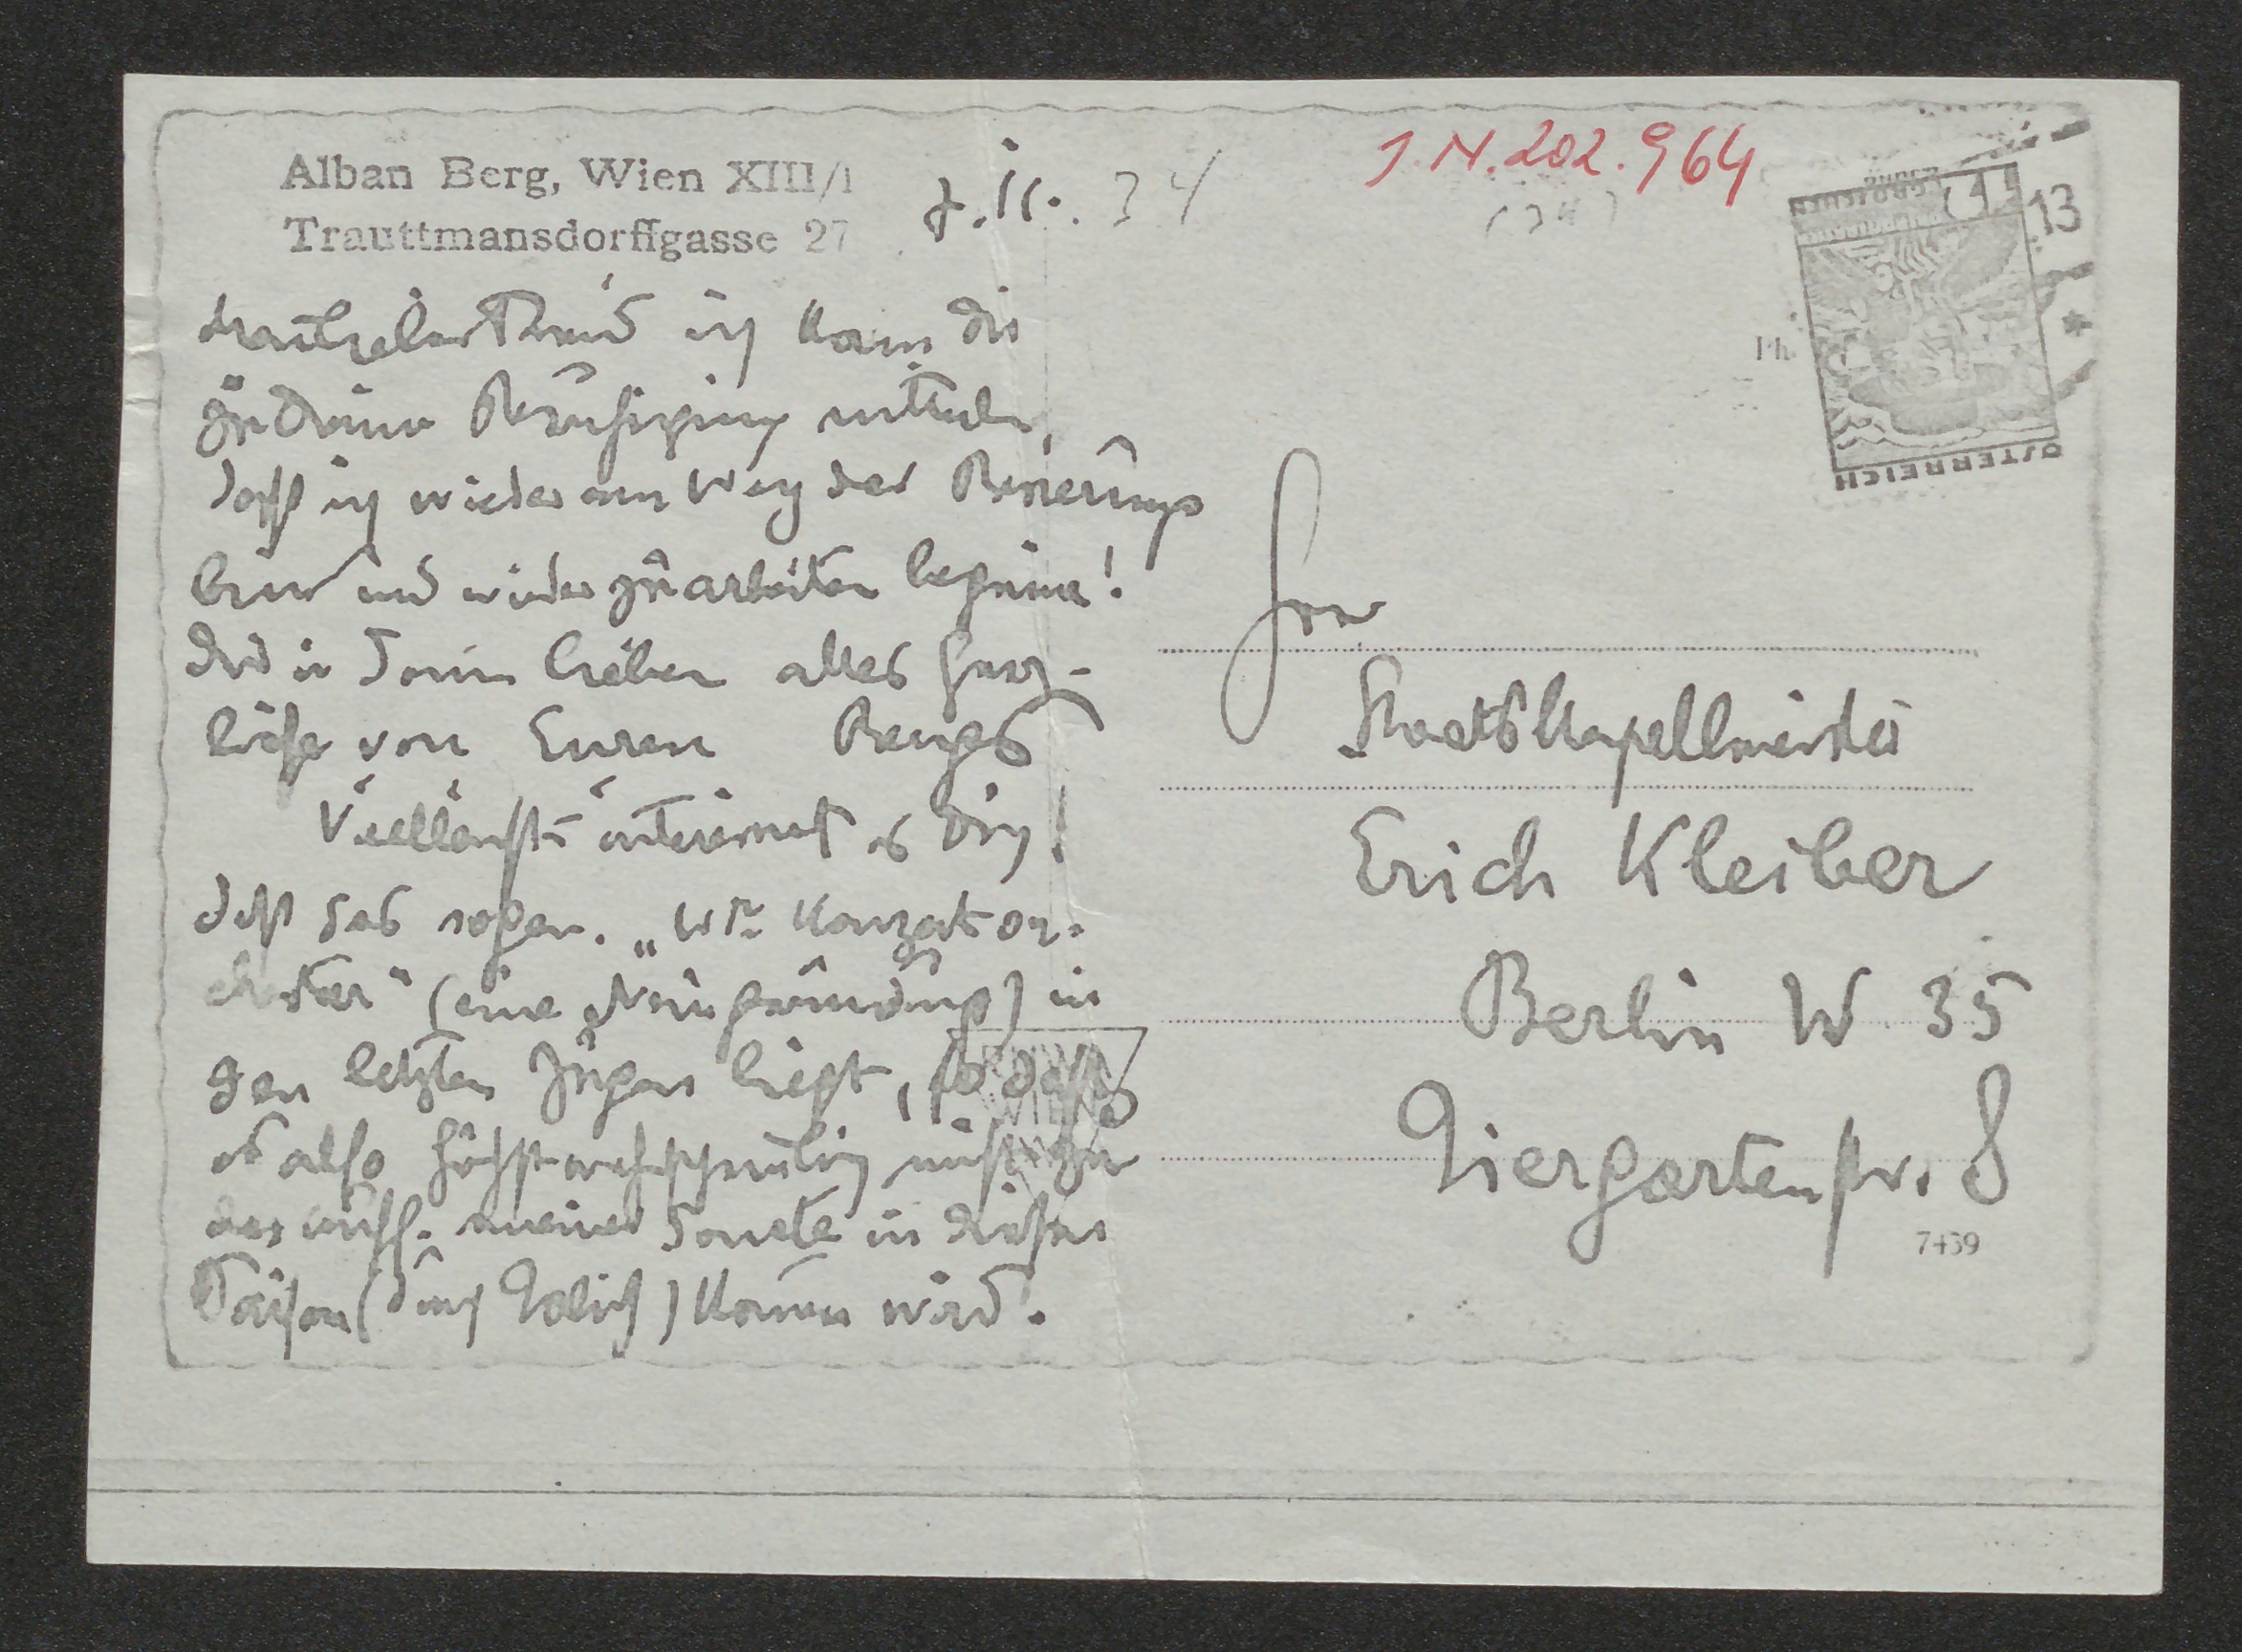 Alban Berg, Wien XIII/1
Trauttmansdorffgasse 27
7.11.34
J.N.202.964
(34)
13
ÖSTERREICH
Freund ich kann Dir
zu Deiner Beruhigung mitteilen,
dass ich wieder am Weg der Besserung
bin und wieder zu arbeiten beginne!
Dir u Deinen Lieben alles Herz-
liche von Euren Bergs
Vielleicht interessiert es Dich!
dass das sogen. „Wr. Konzertor-
chester" (eine Neugründung) in
den letzten Zügen liegt, so dass
es also höchstwahrscheinlich nicht zu
der Auff. meiner Sonate in dieser
Saison (durch) kommen wird.
Herrn
Staatskapellmeister
Erich Kleiber
Berlin W 35
Tiergartenstr. 8
7439